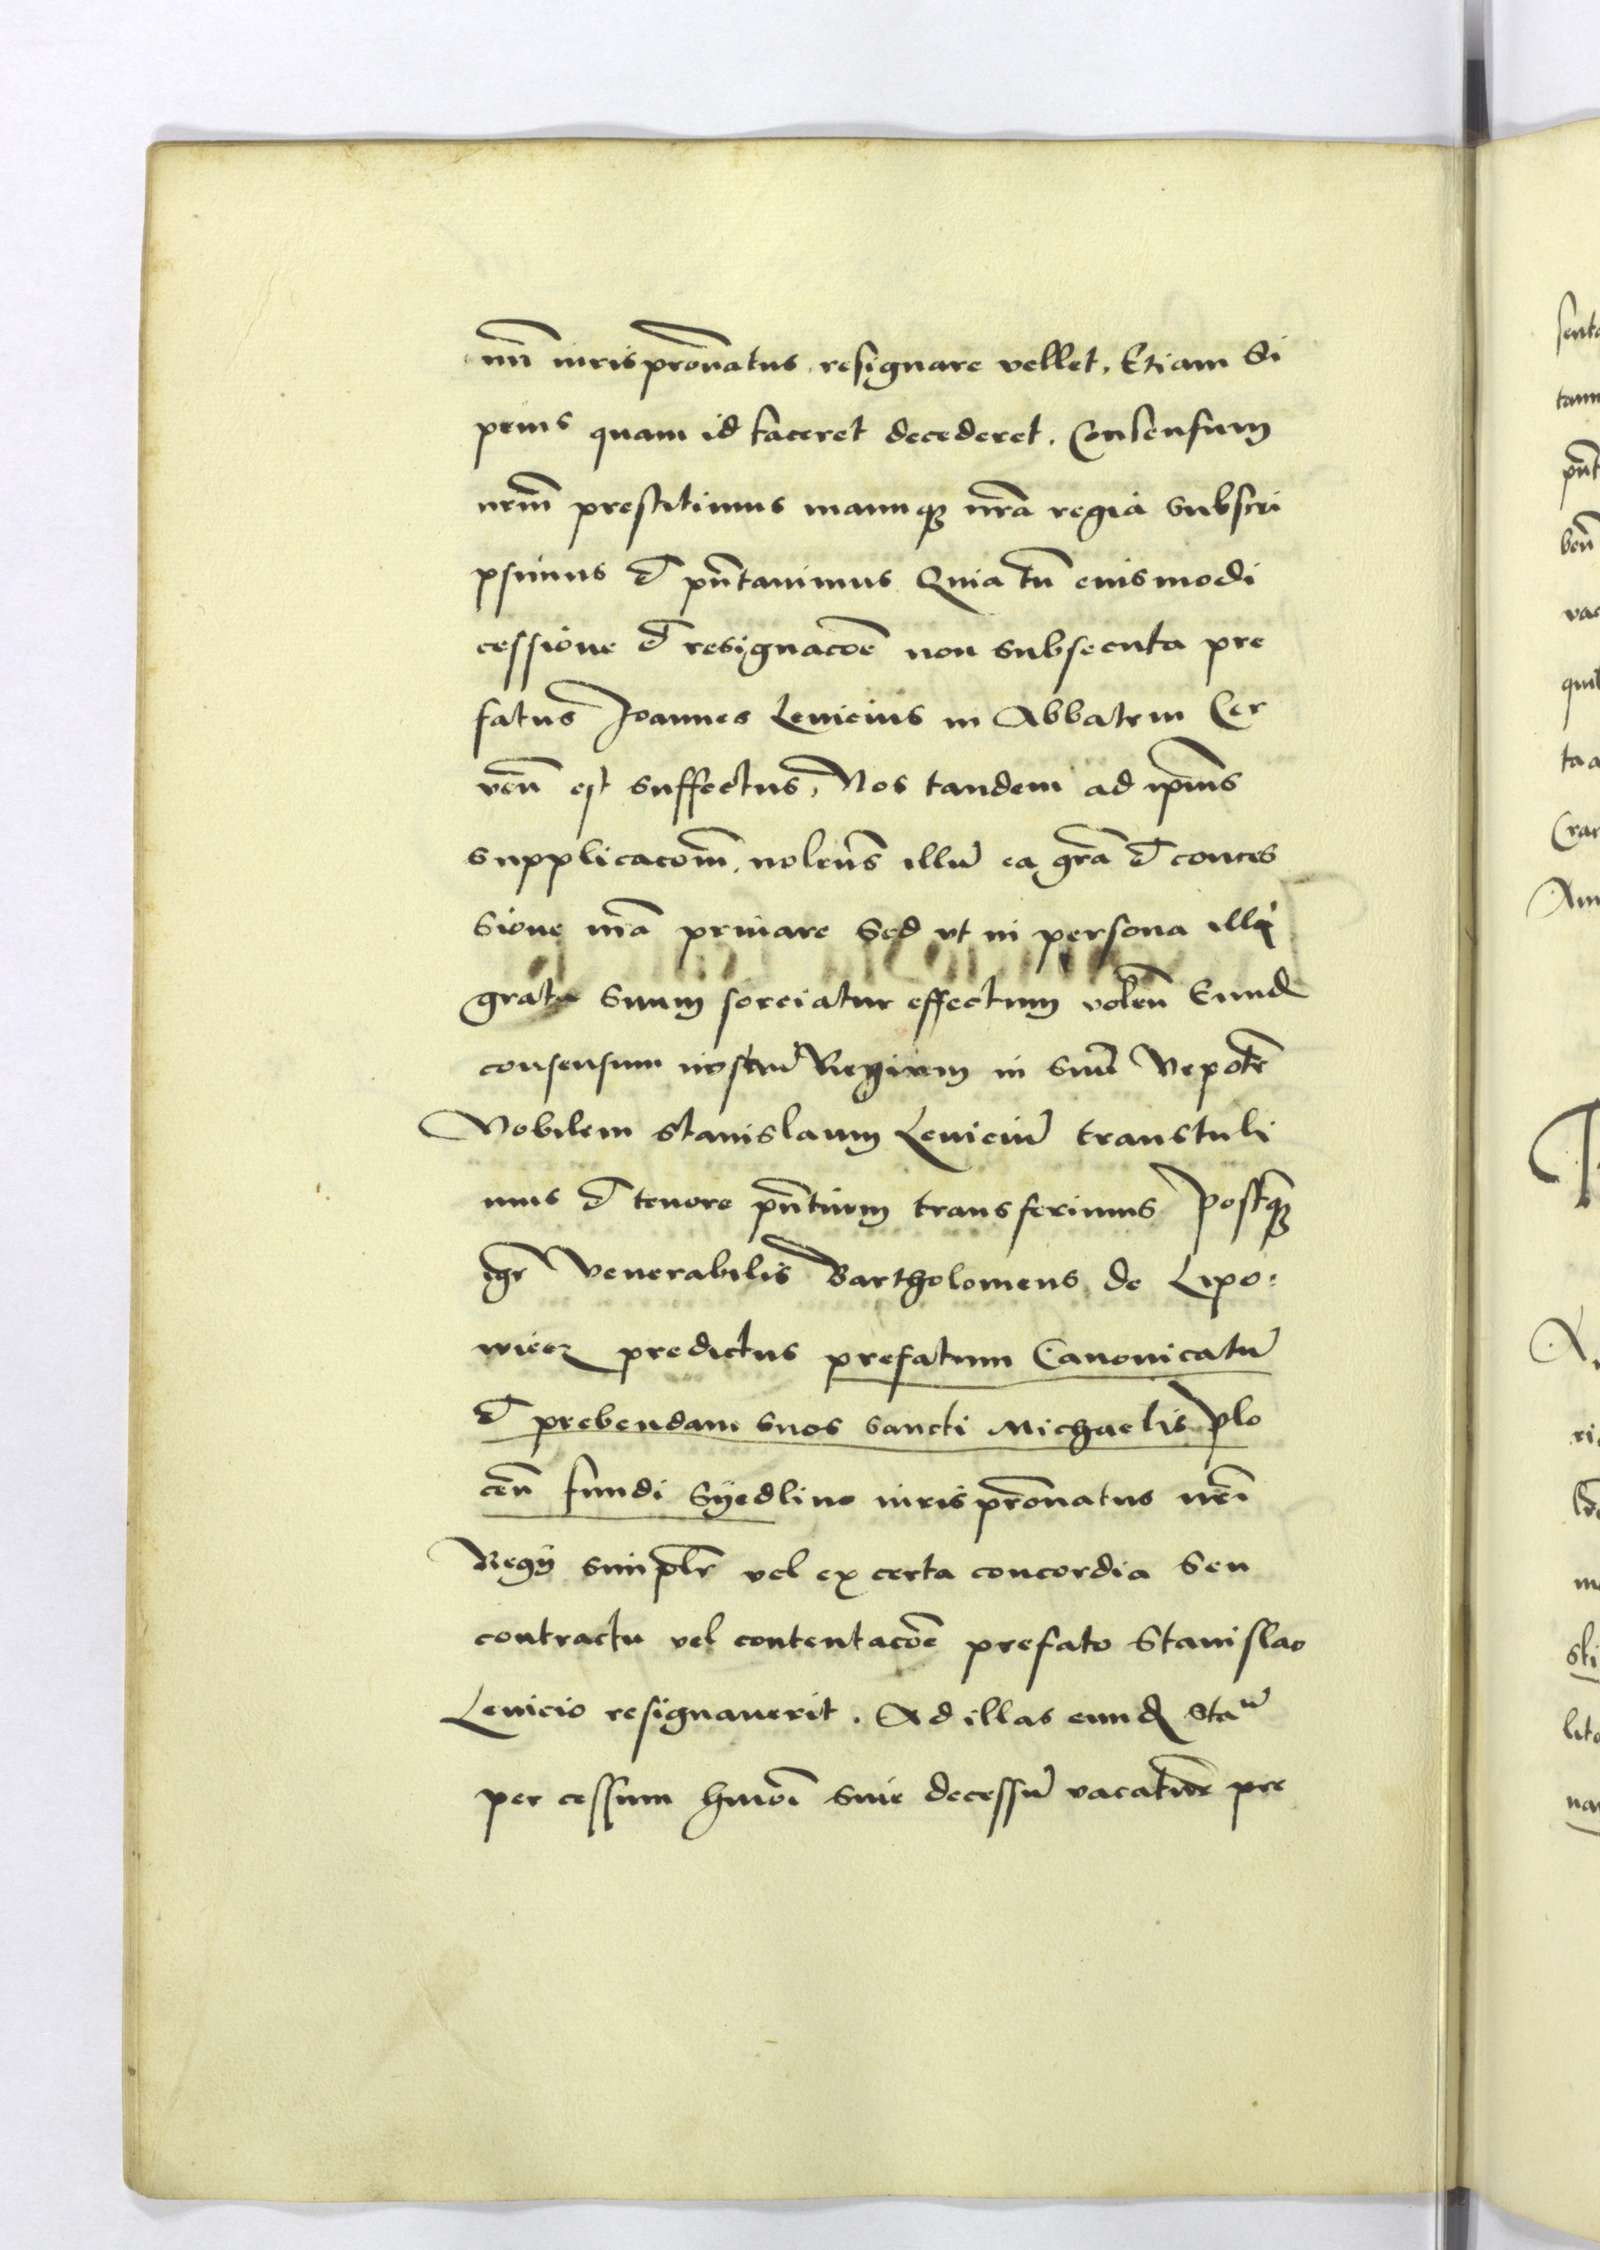 nri iurispronatus resignare vellet. Etiam si
prius quam id faceret decederet. Consensum
nrm prestitimus manuq nra regia subscri
psimus et pntauimus Quia tn euismodi
cessione et resignacoe non subsecuta pre
fatus Joannes Leuicius in Abbatem Cer
uen est suffectus, Nos tandem ad ipius
supplicacom nolens illu ea gra et conces
sione nra priuare sed vt in persona illi
grata suum sorciatur effectum volen Eund
consensum nostru Regium in suu Nepote
Nobilem Stanislaum Leuiciu transtuli
mus et tenore pntium transferimus Postq
igr Venerabilis Bartholomeus de Lipo:
wiecz predictus prefatum Canonicatu
et prebendam suos sancti Michaelis plo
cen fundi Syedlino iurispronatus nri
Regij simplr vel ex certa concordia seu
contractu vel contentacoe prefato Stanislao
Leuicio resignauerit. Ad illas eund Sta u
per cessum hmoi siue decessu vacature pre
sent
tam
pnt
ben
vac
quil
ta a
Crac
Ann
ric
sti
lito
nar